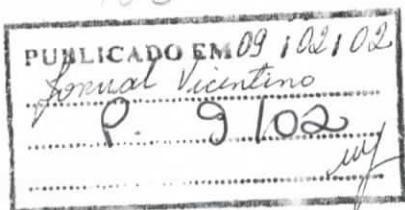 PUBLICADO EM 09 / 02 / 02
Jornal Vicentino
P. 9/02